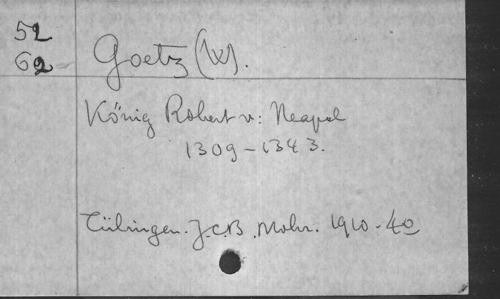 52
62
Goetz (W).
König Robert v: Neapel
1309-1343.
Tübingen. J.C.B. Mohr. 1910. 4o